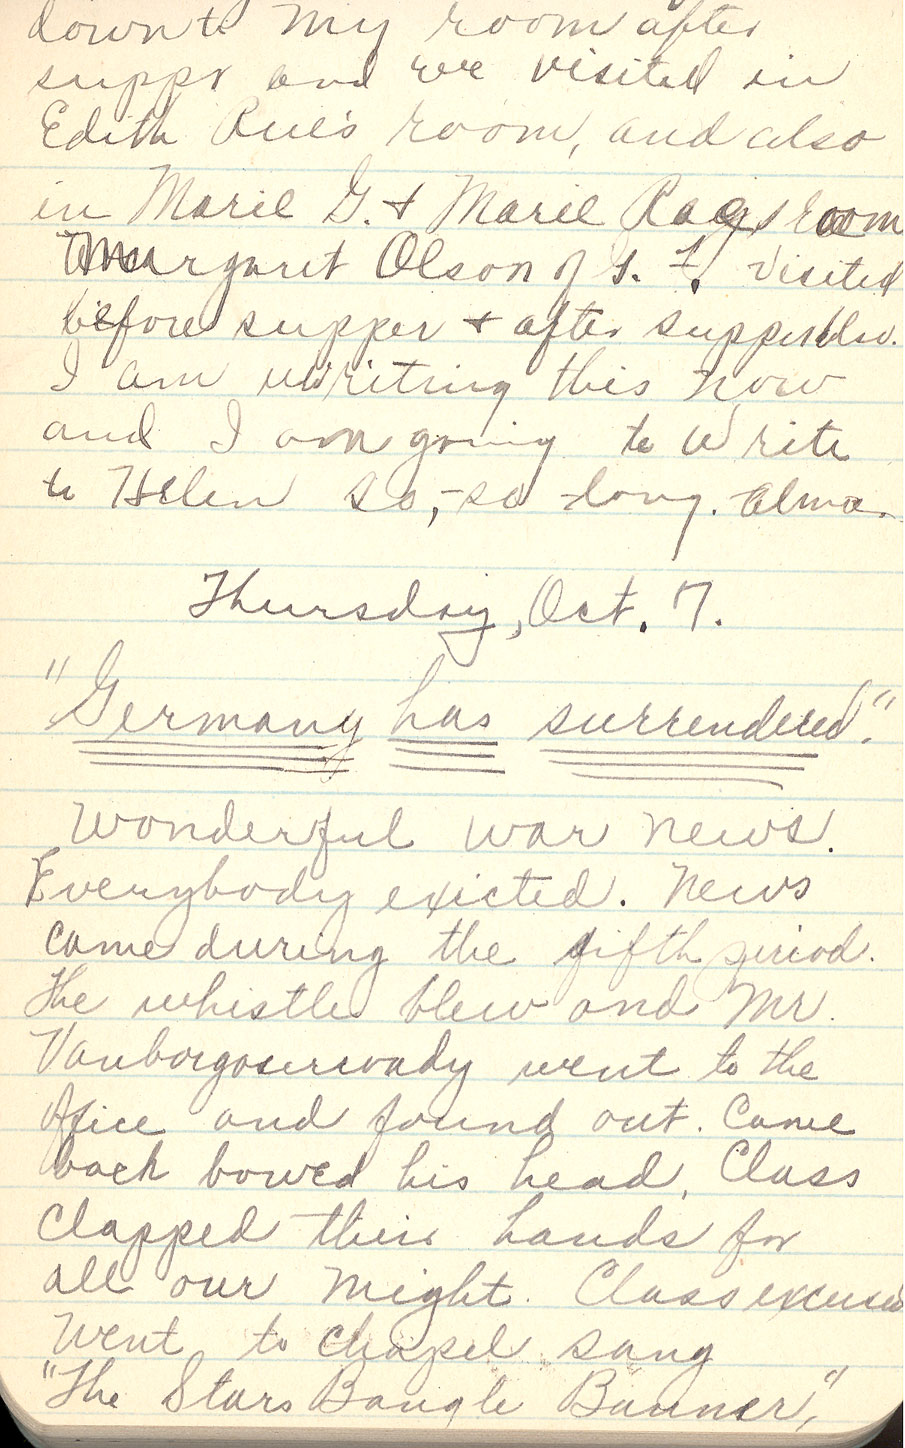 down to my room after
suppr and we visited in
Edith Rue's room, and also
in Marie G. & Marie Rag's room
Margaret Olson of G. F. visited
before supper & after supper
I am writing this now
and I am going to write
to Helen so,- so long. Alma.
Thursday, Oct. 7.
"Germany has surrendered".
Wonderful war news.
Everybody exicted. News
came during the fifth period.
The whistle blew and Mr.
went to the
office and found out. Came
back bowed his head, Class
clapped their hands for
all our might. Class excused
Went to chapel sang
"The Stars Bangle Banner,"